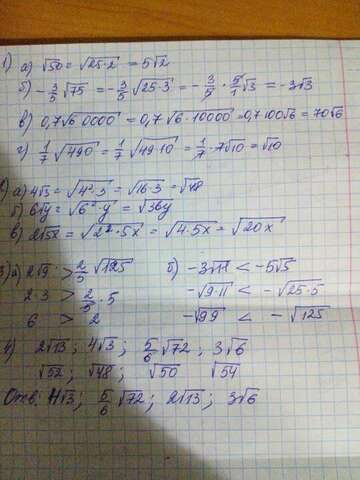 1) а) √50 = √25·2 = 5√2
б) -3/5 √75 = -3/5 √25·3 = -3/5 · 5/1 √3 = -3√3
в) 0,7√60000 = 0,7√6·10000 = 0,7 100√6 = 70√6
г) 1/7 √490 = 1/7 √49·10 = 1/7 · 7√10 = √10
а) 4√3 = √4²·3 = √16·3 = √48
б) 6√y = √6²·y = √36y
в) 2√5x = √2²·5x = √4·5x = √20x
3) а) 2√9 > 2/5 √125 б) -3√11 < -5√5
2·3 > 2/5 · 5 -√9·11 < -√25·5
6 > 2 -√99 < -√125
4) 2√13; 4√3; 5/6 √72; 3√6
√52; √48; √50 √54
Отв: 4√3; 5/6 √72; 2√13; 3√6